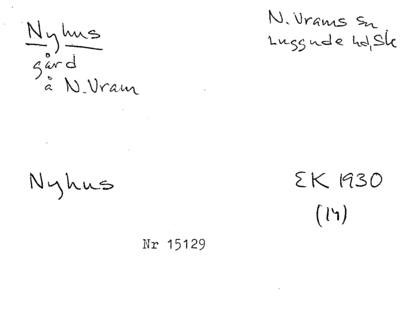 Nyhus
gård
å N. Vram
N. Vrams sn
Luggude hd, Sk
Nyhus
EK 1930
(14)
Nr 15129